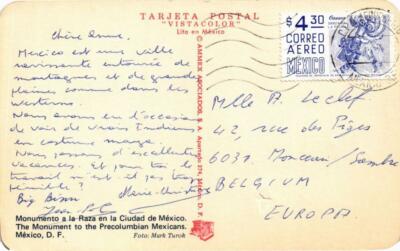 TARJETA POSTAL
"VISTACOLOR"
Lito en México
Chère Anne,
Mexico est une ville
ravissante entourée de
montagnes et de grandes
plaines comme dans les
westerns.
Nous avons eu l'occasion
de voir de vrais Indiens
en costume
Nous passons d'excellentes
vacances. Et pour toi le
travail n'est-il pas trop
pénible?
Big Bisous
Marie-Christine
Monumento a la Raza en la Ciudad de México.
The Monument to the Precolumbian Mexicans.
México, D. F.
Foto: Mark Turok
© AMMEX ASOCIADOS, S. A. Apartado México, D. F.
$4.30
CORREO
AEREO
MÉXICO
Oaxaca
Mlle A. Leclef
42, rue des Piges
6031 Monceau/Sambre
BELGIUM
EUROPA